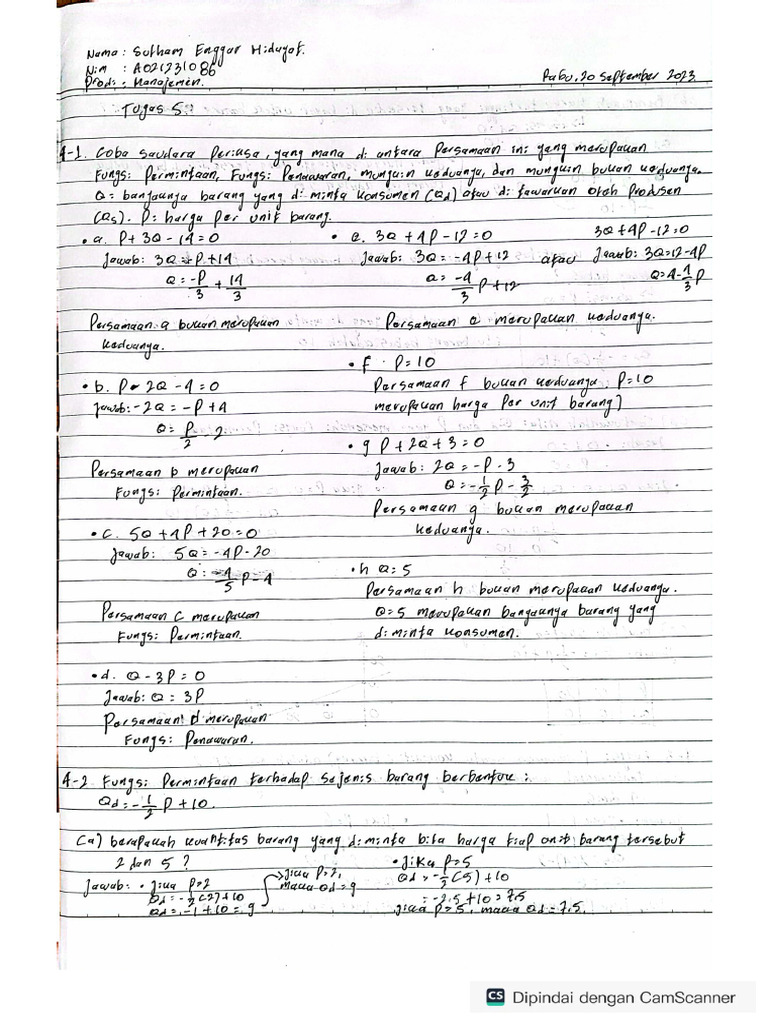 Nama : Sutham Enggar Hidayat.
Nim : A021231086
Prodi : Manajemen.
Rabu, 20 September 2023
Tugas 5
4-1. Coba saudara periksa, yang mana di antara persamaan ini yang merupakan
Fungsi Permintaan, Fungsi Penawaran, mungkin keduanya, dan mungkin bukan keduanya.
Q = banyaknya barang yang diminta konsumen (Qd) atau di tawarkan oleh produsen
(Qs). P = harga per unit barang.
• a. P + 3Q - 14 = 0
Jawab: 3Q = -P + 14
Q = -P/3 + 14/3
Persamaan a bukan merupakan
keduanya.
• b. P - 2Q - 4 = 0
Jawab: -2Q = -P + 4
Q = P/2 - 2
Persamaan b merupakan
Fungsi Permintaan.
• c. 5Q + 4P + 20 = 0
Jawab: 5Q = -4P - 20
Q = -4/5 P - 4
Persamaan c merupakan
Fungsi Permintaan.
• d. Q - 3P = 0
Jawab: Q = 3P
Persamaan d merupakan
Fungsi Penawaran.
• e. 3Q + 4P - 12 = 0
Jawab: 3Q = -4P + 12 atau
Q = -4/3 P + 12
3Q + 4P - 12 = 0
Jawab: 3Q = 12 - 4P
Q = 4 - 4/3 P
Persamaan e merupakan keduanya.
• f. P = 10
Persamaan f bukan keduanya. P = 10
merupakan harga per unit barang
• g P + 2Q + 3 = 0
Jawab: 2Q = -P - 3
Q = -1/2 P - 3/2
Persamaan g bukan merupakan
keduanya.
• h Q = 5
Persamaan h bukan merupakan keduanya.
Q = 5 merupakan bangaknya barang yang
diminta konsumen.
4-2 Fungsi Permintaan terhadap sejenis barang berbentuk :
Qd = -1/2 P + 10.
(a) berapakah kuantitas barang yang diminta bila harga tiap unit barang tersebut
2 dan 5 ?
Jawab: • Jika P = 2
Qd = -1/2 (2) + 10
Qd = -1 + 10 = 9
Jika P = 2,
maka Qd = 9
• Jika P = 5
Qd = -1/2 (5) + 10
= -2,5 + 10 = 7,5
Jika P = 5, maka Qd = 7,5.
CS Dipindai dengan CamScanner